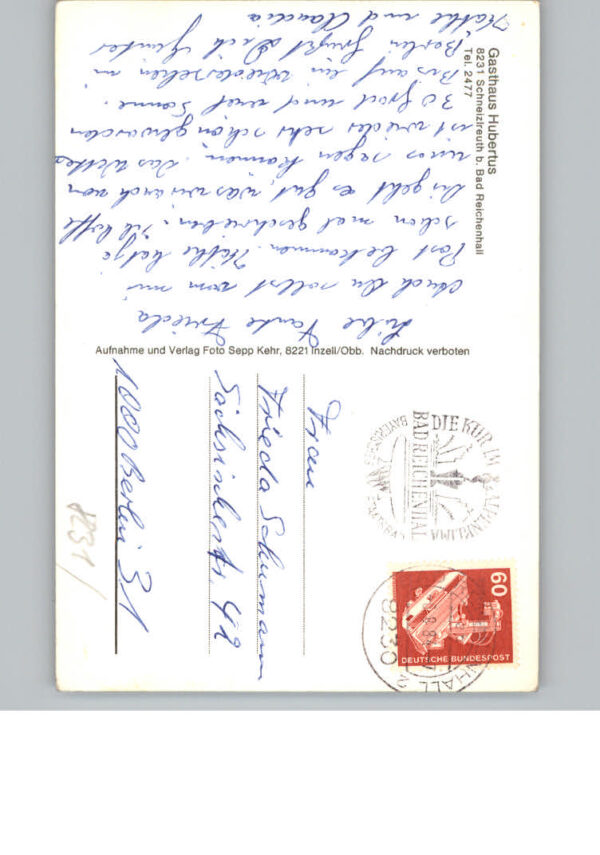 Gasthaus Hubertus
8231 Schneizlreuth b. Bad Reichenhall
Tel. 2477
Liebe Tante Frieda
Auch Du sollst von mir
Post bekommen. Käthe hatje
schon mal geschrieben. Ich hoffe
Dir geht es gut, was wir auch von
uns sagen können. Das Wetter
ist wieder sehr schön geworden
30 Grad und viel Sonne.
Bis auf ein Wiedersehen in
Berlin grüßt Dich Günter
Käthe und Claudia
Aufnahme und Verlag Foto Sepp Kehr, 8221 Inzell/Obb. Nachdruck verboten
Frau
Frieda Schumann
Sächsischestr 42
1000 Berlin 31
8231
DIE KUR IM
ALPENKLIMA
BAD REICHENHALL
BAYER. STAATSBAD
60
DEUTSCHE BUNDESPOST
8230